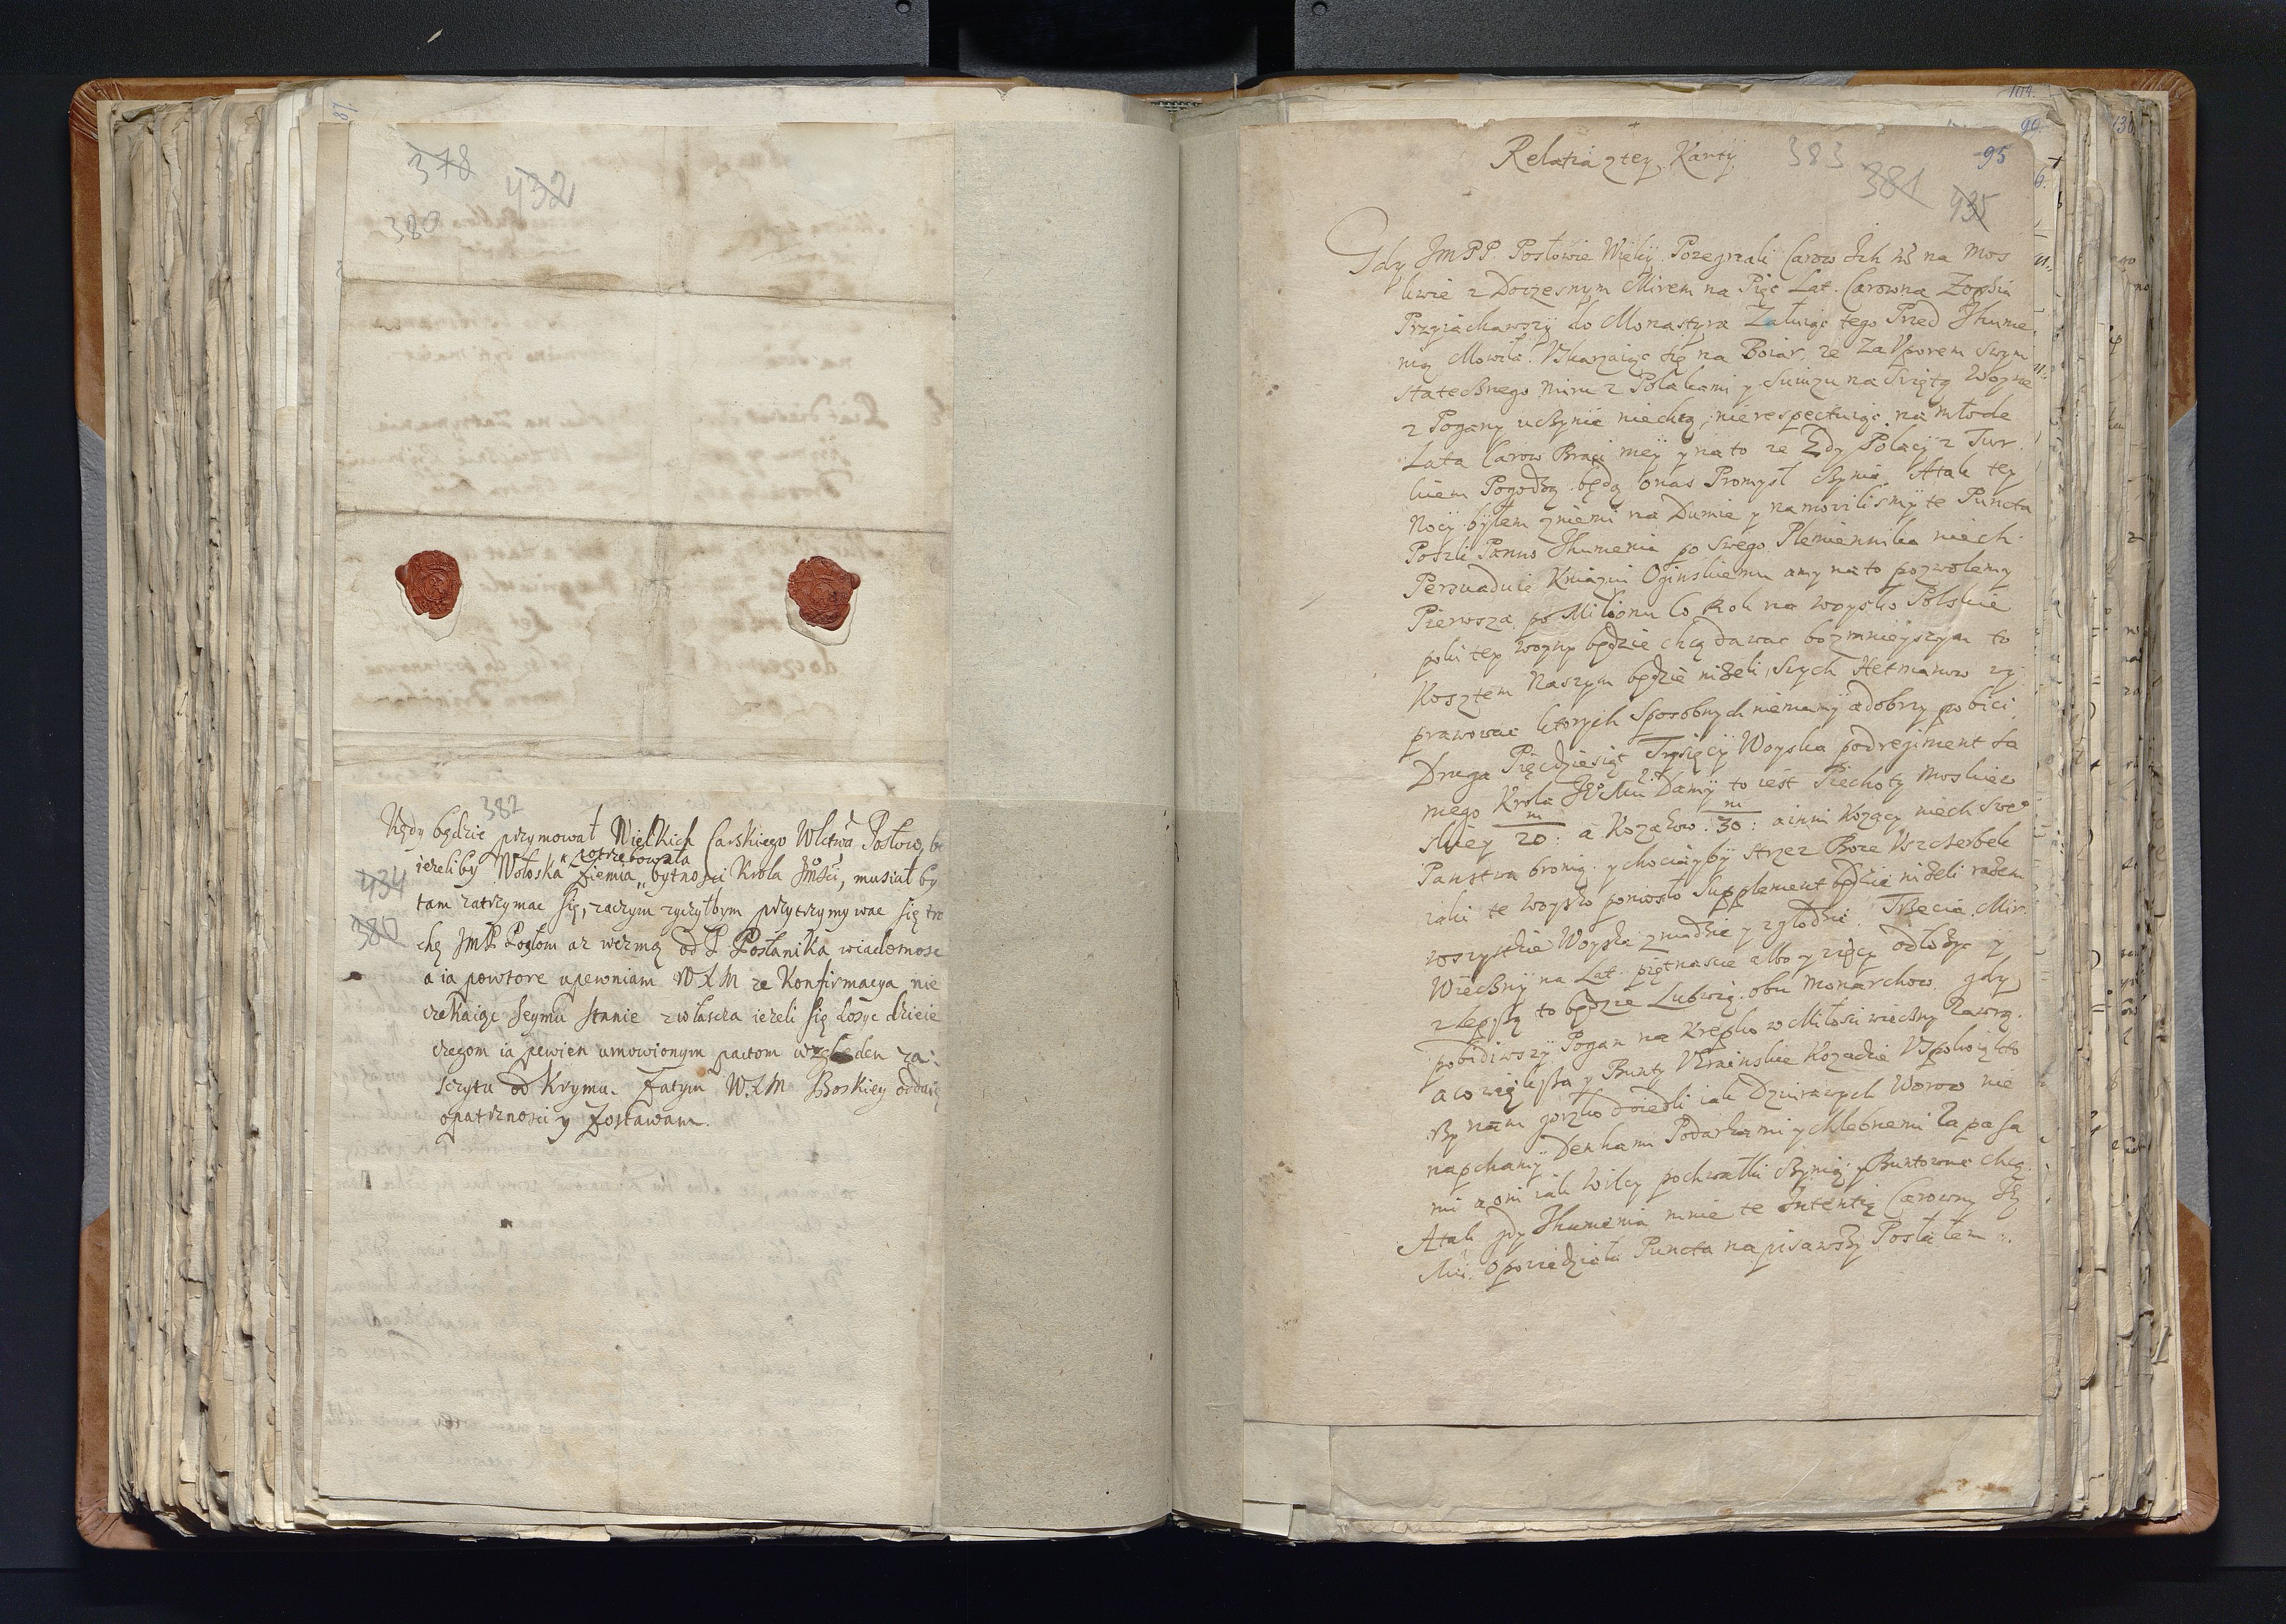 378
432
380
382
Kędy będzie przymował Wielkich Carskiego Wlctwa Posłow,
ieżeliby Wołoska Ziemia potrzebowała bytnosci Krola Jmści, musiał by
434
tam zatrzymac się, zaczym zyczyłbym przytrzymywac się
380
chę JmP. Posłom az wezmą od P. Posłanika wiadomosc
a ia powtore upewniam WLM ze Konfirmacya nie
czekaiąc Seymu stanie zwłascza ieżeli się dosyc dzieie
czegom ia pewien umowionym pactom względem za-
sczytu od Krymu. Zatym WLM Boskiey oddaię
opatrznosci y Zostawam.
104.
90.
95
Relatia z tey Karty
383
381
435
Gdy JmPP. Posłowie Wielcy Pozegnali Carow Ich na Mos
kwie z Doczesnym Mirem na Pięc Lat. Carowna Zophia
Przyiachawszy do Monastyra Załuiąc tego Przed Ihume
nią Mowiła Uskarzaiąc się na Boiar, ze Za Uporem swym
statecznego miru z Polakami y Suiuzu na Swiętą Woynę
z Pogany uczynic niechcą, nierespectuiąc na młode
Lata Carow Braci mey y na to ze Gdy Polacy z Tur
kiem Pogodzą będą o nas Promysł czynic. A tak tey
Nocy byłem z niemi na Dumie y namowilismy te Puncta
Poszli Panno Ihumenia po swego Plemiennika niech
Persuaduie Kniaziu Oginskiemu a my na to pozwolemy
Pierwsza, po Milionu Co Rok na woysko Polskie
poki tey woyny będzie chcą dawac bo z mnieyszym to
Kosztem Naszym będzie nizeli, swych Hetmanow wy
prawowac ktorych Sposobnych niemamy a dobrzy pobici
Druga Pięcdziesiąt Tysięcy Woyska pod regiment sa
mego Krola Je° Mci Damy to iest Piechoty Moskiew
skiey 20: a Kozakow: 30: a inni Kozacy niech swe°
Panstwa bronią, y chociazby strzez Boze Uszczerbek
iaki te woysko poniosło Supplement będzie nizeli razem
wszystkie Woyska znudzic y zgłodzic. Trzecia Mir
Wieczny na Lat. piętnascie albo y więcy odłozyc y
z lepszą to będzie Lubwią obu Monarchow. gdy
pobidiwszy Pogan na Krepko w Miłosci wieczny Zawrą.
a co większa y Bunty Ukrainskie Kozackie Uspokoią kto
rzy nam gorzko doiedli iak Dziurawych Worow nie
napchamy Denhami Podarkami y Chlebnemi Zapasa
mi a oni iak wilcy pochwałki czynią y Buntowac chcą.
A tak gdy Ihumenia mnie te Intentię Carowny Jey
Mci. Opowiedziała Puncta napisawszy Posłałem.